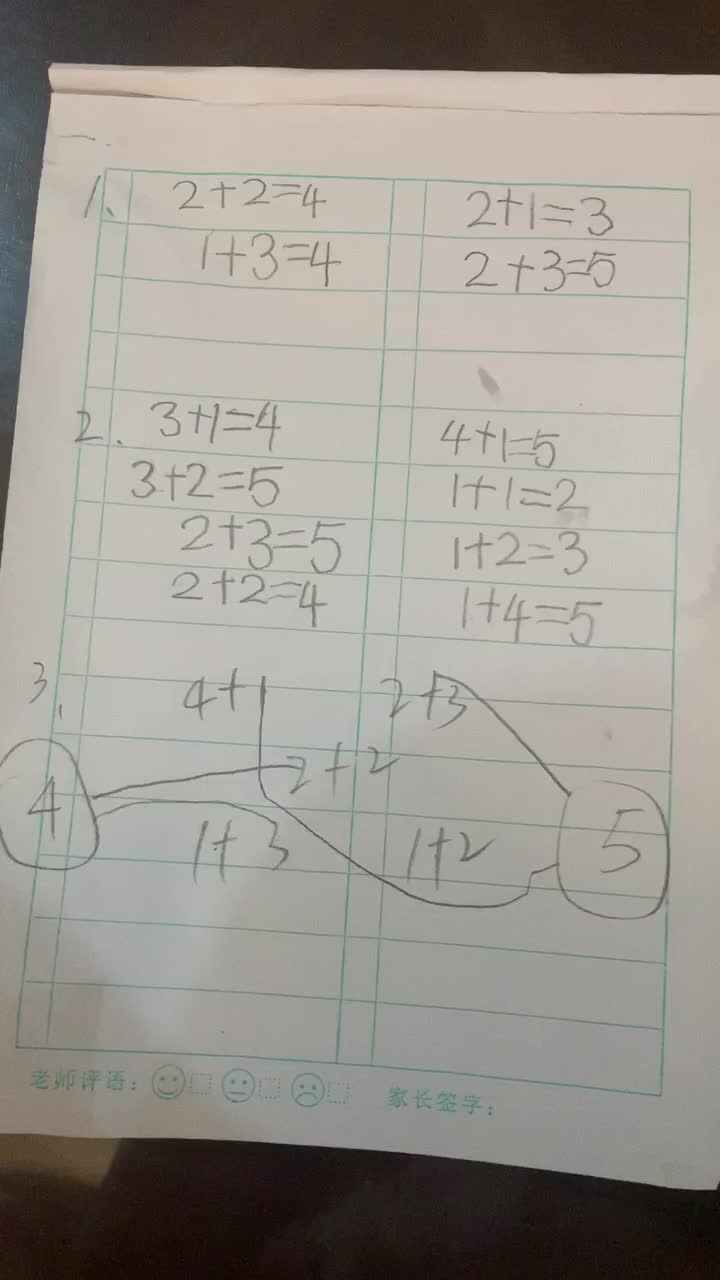 一.
1、 2+2=4 2+1=3
1+3=4 2+3=5
2. 3+1=4 4+1=5
3+2=5 1+1=2
2+3=5 1+2=3
2+2=4 1+4=5
3. 4+1 2+3
4 2+2 5
1+3 1+2
老师评语： 家长签字：